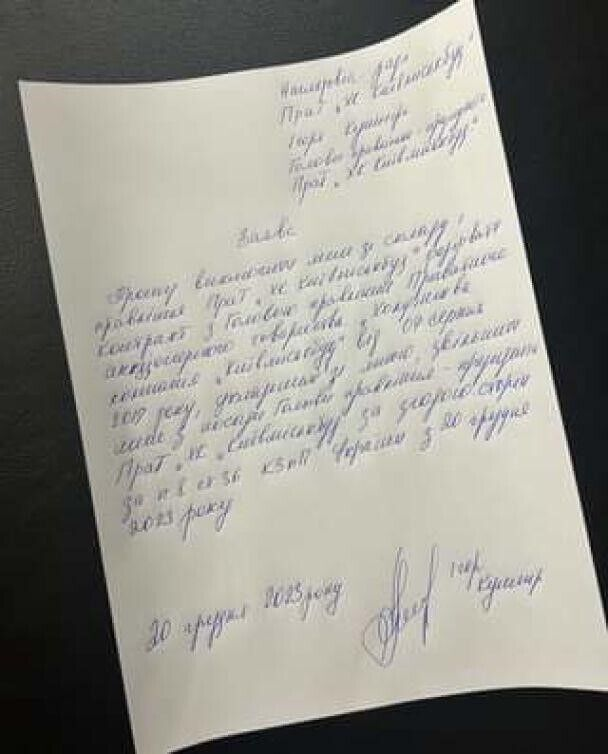 Наглядовій раді
ПрАТ „ХК Київміськбуд"
Ігоря Кушніра
Голови правління-президента
ПрАТ „ХК Київміськбуд"
Заява
Прошу виключити мене зі складу
правління ПрАТ „ХК Київміськбуд" розірвати
контракт з Головою правління Приватного
акціонерного товариства „Холдингова
компанія „Київміськбуд" від 07 серпня
2017 року, укладений зі мною, звільнити
мене з посади Голови правління-президента
ПрАТ „ХК „Київміськбуд" за згодою сторін
за п 1 ст 36 КЗпП України з 20 грудня
2023 року
20 грудня 2023 року
Ігор
Кушнір